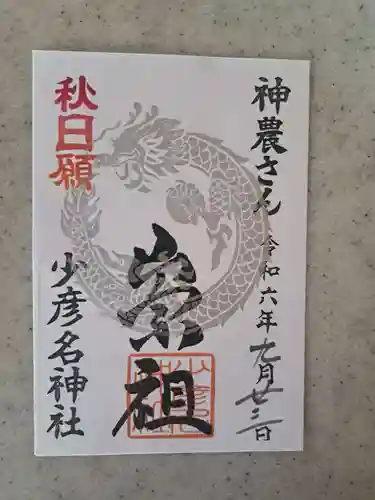 神農さん 令和六年九月廿三日
崇祖
秋日願
少彦名神社